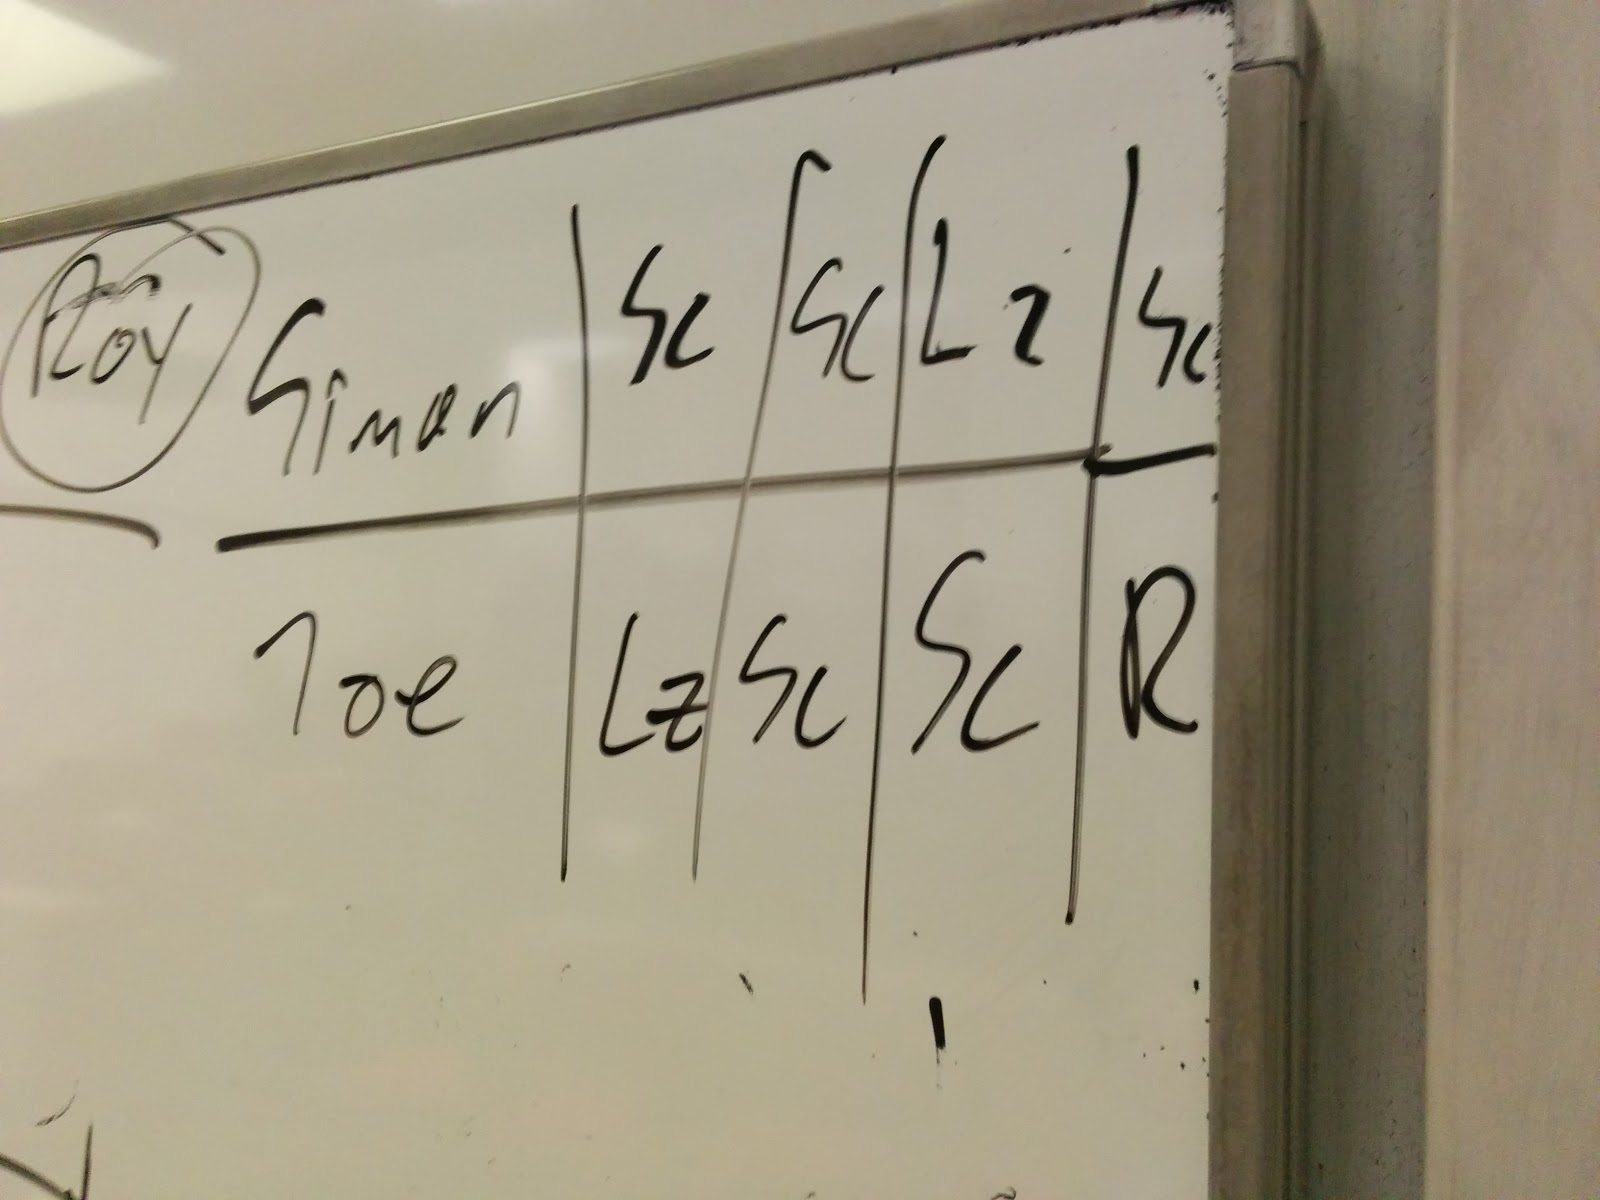 Roy
Simon Sc Sc Lz Sc
Joe Lz Sc Sc R